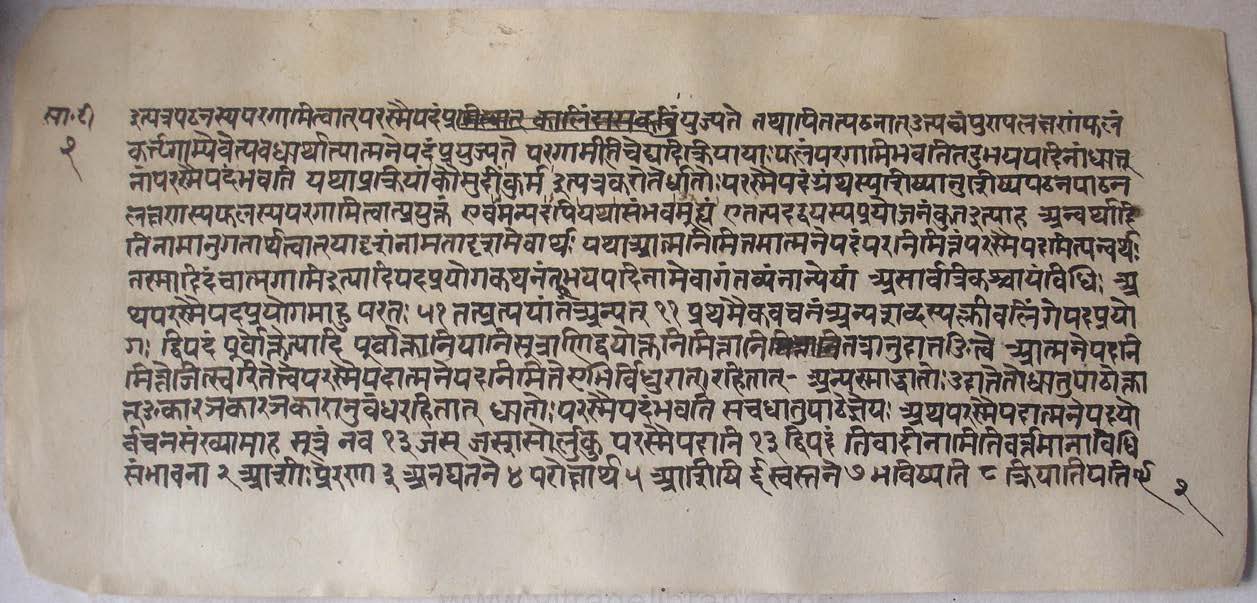 सा. टी
२
इत्यत्रपठनस्यपरगामित्वात्परस्मैपदंप्र युज्यते तथापितत्पठनात्उत्पन्नंपुण्यलक्षणंफलं
कर्तृगाम्येवेत्यवधार्यात्मनेपदंप्रयुज्यते परगामीतिचेद्यदिक्रियायाःफलंपरगामिभवतितदुभयपदिनांधातू
नांपरस्मैपदंभवति यथाप्रक्रियांकौमुदींकुर्म इत्यत्रकरोतेर्धातोःपरस्मैपदंग्रंथस्यशिष्यानुशिष्यपठनपाठन
लक्षणस्यफलस्यपरगामित्वात्प्रयुक्तं एवमन्यदपियथासंभवमूह्यं एतत्पदद्वयस्यप्रयोजनंकुतइत्याह अन्वर्थादि
तिनामानुगतार्थत्वात्यादृशंनामतादृशमेवार्थः यथाआत्मनिमित्तमात्मनेपदंपरनिमित्तंपरस्मैपदमित्यन्वर्थः
तस्मादिदंचात्मगामिइत्यादिपदप्रयोगकथनंतूभयपदिनामेवागंतव्यंनान्येषां असार्वत्रिकश्चायंविधिः अ
थपरस्मैपदप्रयोगमाह परतः ५१ तत्प्रत्ययांतंअन्यत् ११ प्रथमैकवचनंअन्यशब्दस्यक्लीबलिंगेपदप्रयो
गः द्विपदं पूर्वोक्तेत्यादि पूर्वोक्तानियानिसूत्राणिद्वयोक्तनिमित्तानि तत्रानुदात्तङित्त्वे आत्मनेपदनि
मित्तेञित्स्वरितेत्त्वेपरस्मैपदात्मनेपदनिमित्तेएभिर्विधुरात् रहितात् अन्यस्माद्धातोः उदात्तेतोधातुपाठोक्ता
त्ङकारञकारञकारानुबंधरहितात् धातोः परस्मैपदंभवति सचधातुपाठेज्ञेयः अथपरस्मैपदात्मनेपदयो
र्वचनसंख्यामाह सूत्रं नव १३ जस् जसशसोर्लुक् परस्मैपदानि १३ द्विपदं तिवादीनामितिवर्त्तमानाविधि
संभावना २ आशीःप्रेरणा ३ अनद्यतने ४ परोक्षार्थ ५ आशिषि ६ श्वस्तने ७ भविष्यति ८ क्रियातिपत्ति ९
२